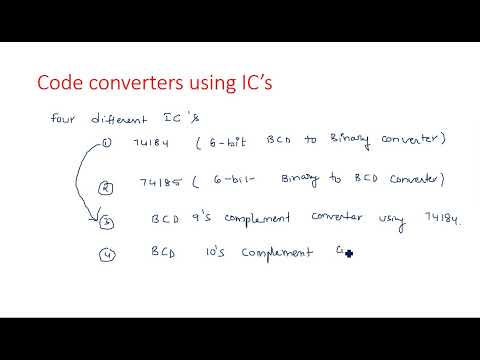 Code converters using IC's
four different IC's
① 74184 ( 6-bit BCD to Binary converter)
② 74185 ( 6-bit Binary to BCD converter)
③ BCD 9's complement converter using 74184.
④ BCD 10's complement